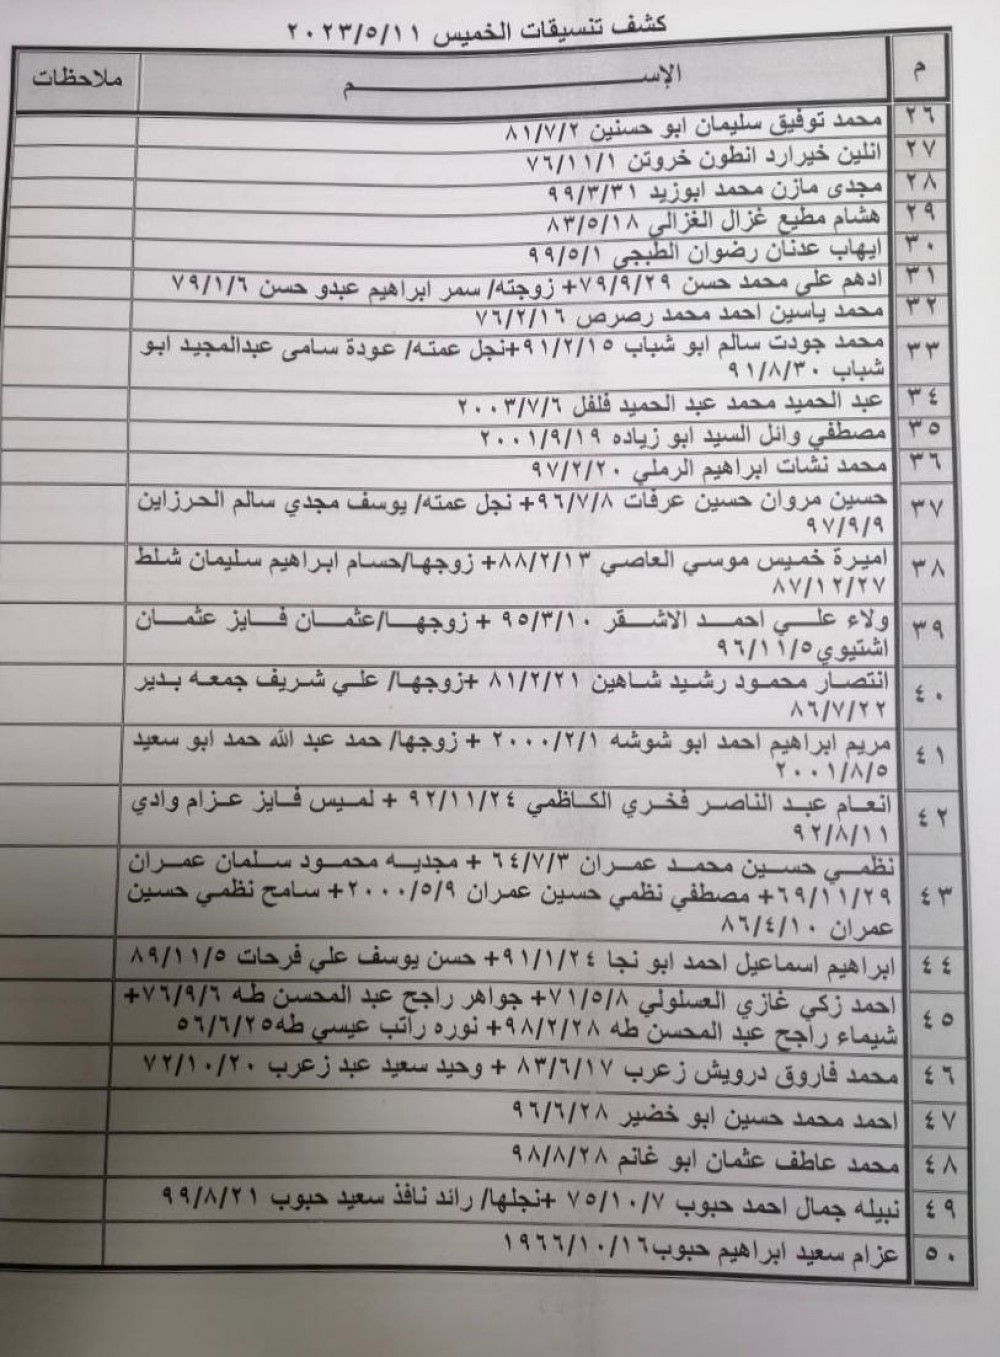 كشف تنسيقات الخميس ٢٠٢٣/٥/١١
م الإســـــــــم ملاحظات
٢٦ محمد توفيق سليمان ابو حسنين ٨١/٧/٢
٢٧ انلين خيرارد انطون خروتن ٧٦/١١/١
٢٨ مجدى مازن محمد ابوزيد ٩٩/٣/٣١
٢٩ هشام مطيع غزال الغزالي ٨٣/٥/١٨
٣٠ ايهاب عدنان رضوان الطبجي ٩٩/٥/١
٣١ ادهم علي محمد حسن ٧٩/٩/٢٩+ زوجته/ سمر ابراهيم عبدو حسن ٧٩/١/٦
٣٢ محمد ياسين احمد محمد رصرص ٧٦/٢/١٦
٣٣ محمد جودت سالم ابو شباب ٩١/٢/١٥+نجل عمته/ عودة سامى عبدالمجيد ابو
شباب ٩١/٨/٣٠
٣٤ عبد الحميد محمد عبد الحميد فلفل ٢٠٠٣/٧/٦
٣٥ مصطفي وائل السيد ابو زياده ٢٠٠١/٩/١٩
٣٦ محمد نشات ابراهيم الرملي ٩٧/٢/٢٠
٣٧ حسين مروان حسين عرفات ٩٦/٧/٨+ نجل عمته/ يوسف مجدي سالم الحرزاين
٩٧/٩/٩
٣٨ اميرة خميس موسي العاصي ٨٨/٢/١٣+ زوجها/حسام ابراهيم سليمان شلط
٨٧/١٢/٢٧
٣٩ ولاء علي احمد الاشقر ٩٥/٣/١٠ + زوجها/عثمان فايز عثمان
اشتيوي٩٦/١١/٥
٤٠ انتصار محمود رشيد شاهين ٨١/٢/٢١ +زوجها/ علي شريف جمعه بدير
٨٦/٧/٢٢
٤١ مريم ابراهيم احمد ابو شوشه ٢٠٠٠/٢/١ + زوجها/ حمد عبد الله حمد ابو سعيد
٢٠٠١/٨/٥
٤٢ انعام عبد الناصر فخري الكاظمي ٩٢/١١/٢٤ + لميس فايز عزام وادي
٩٢/٨/١١
٤٣ نظمي حسين محمد عمران ٦٤/٧/٣ + مجديه محمود سلمان عمران
٦٩/١١/٢٩+ مصطفي نظمي حسين عمران ٢٠٠٠/٥/٩+ سامح نظمي حسين
عمران ٨٦/٤/١٠
٤٤ ابراهيم اسماعيل احمد ابو نجا ٩١/١/٢٤+ حسن يوسف علي فرحات ٨٩/١١/٥
٤٥ احمد زكي غازي العسلولي ٧١/٥/٨+ جواهر راجح عبد المحسن طه ٧٦/٩/٦+
شيماء راجح عبد المحسن طه ٩٨/٢/٢٨+ نوره راتب عيسي طه٥٦/٦/٢٥
٤٦ محمد فاروق درويش زعرب ٨٣/٦/١٧ + وحيد سعيد عبد زعرب ٧٢/١٠/٢٠
٤٧ احمد محمد حسين ابو خضير ٩٦/٦/٢٨
٤٨ محمد عاطف عثمان ابو غانم ٩٨/٨/٢٨
٤٩ نبيله جمال احمد حبوب ٧٥/١٠/٧ +نجلها/ رائد نافذ سعيد حبوب ٩٩/٨/٢١
٥٠ عزام سعيد ابراهيم حبوب١٩٦٦/١٠/١٦